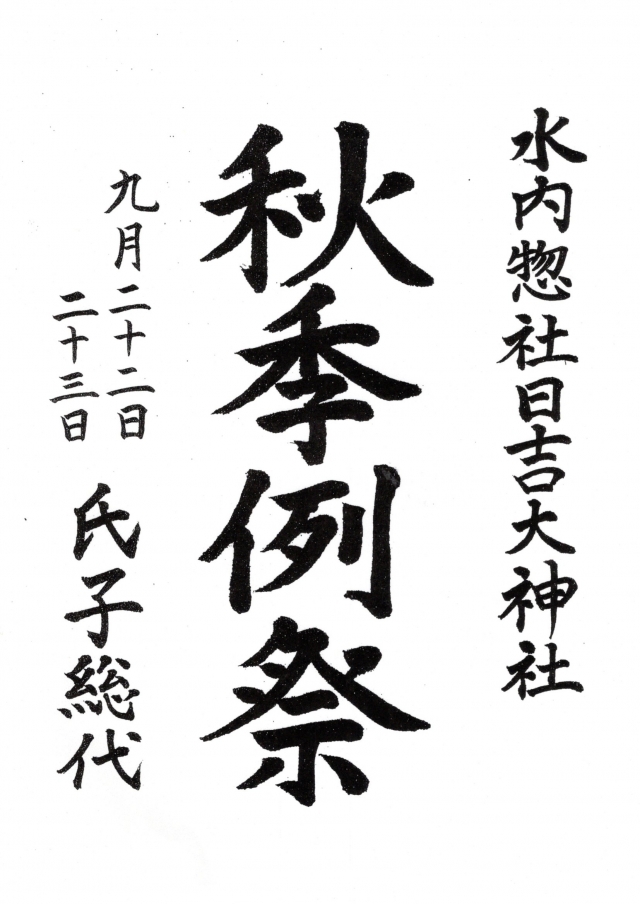 水内惣社日吉大神社
秋季例祭
九月二十二日
二十三日
氏子総代